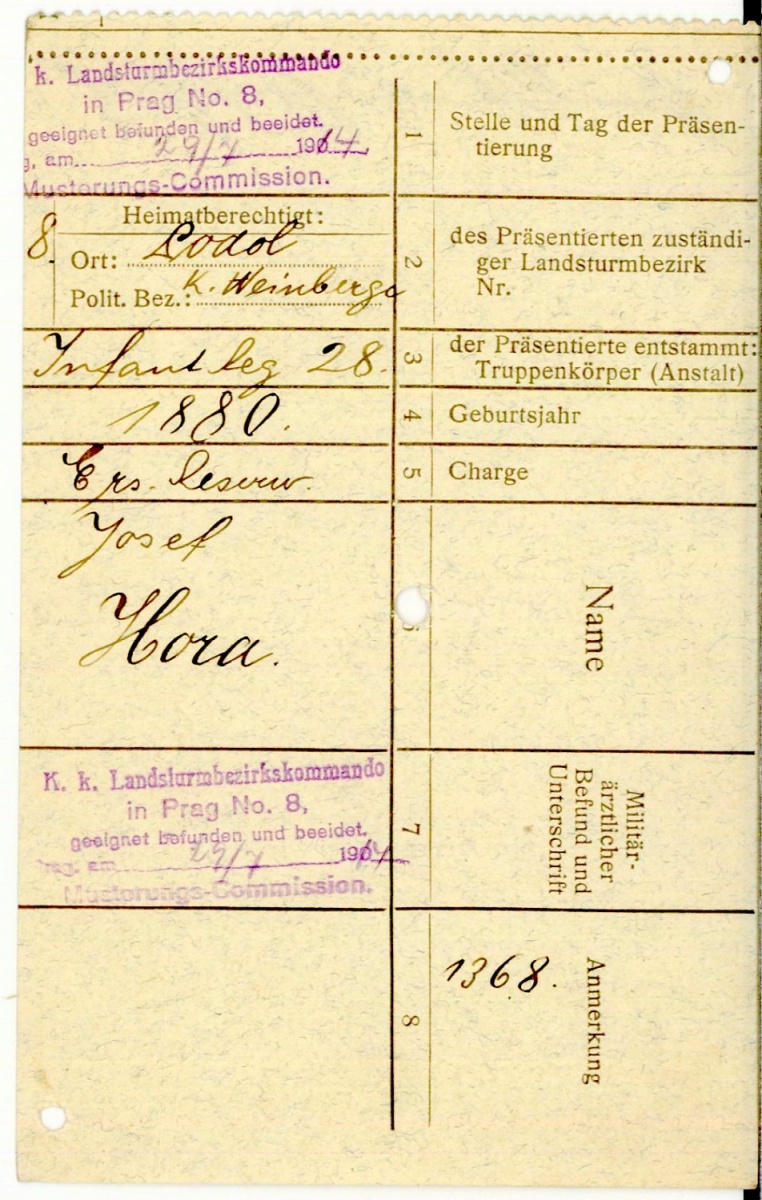 k. Landsturmbezirkskommando
in Prag No. 8,
geeignet befunden und beeidet.
g, am 29/7 1914
Musterungs-Commission.
1
Stelle und Tag der Präsen-
tierung
8.
Heimatberechtigt:
Ort: Podol
Polit. Bez.: K. Weinberge
2
des Präsentierten zuständi-
ger Landsturmbezirk
Nr.
Infant Reg 28.
3
der Präsentierte entstammt:
Truppenkörper (Anstalt)
1880.
4
Geburtsjahr
Ers. Reserv.
5
Charge
Josef
Hora.
Name
K. k. Landsturmbezirkskommando
in Prag No. 8,
geeignet befunden und beeidet.
Prag, am 29/7 1914
Musterungs-Commission.
7
Militär-
ärztlicher
Befund und
Unterschrift
8
1368.
Anmerkung